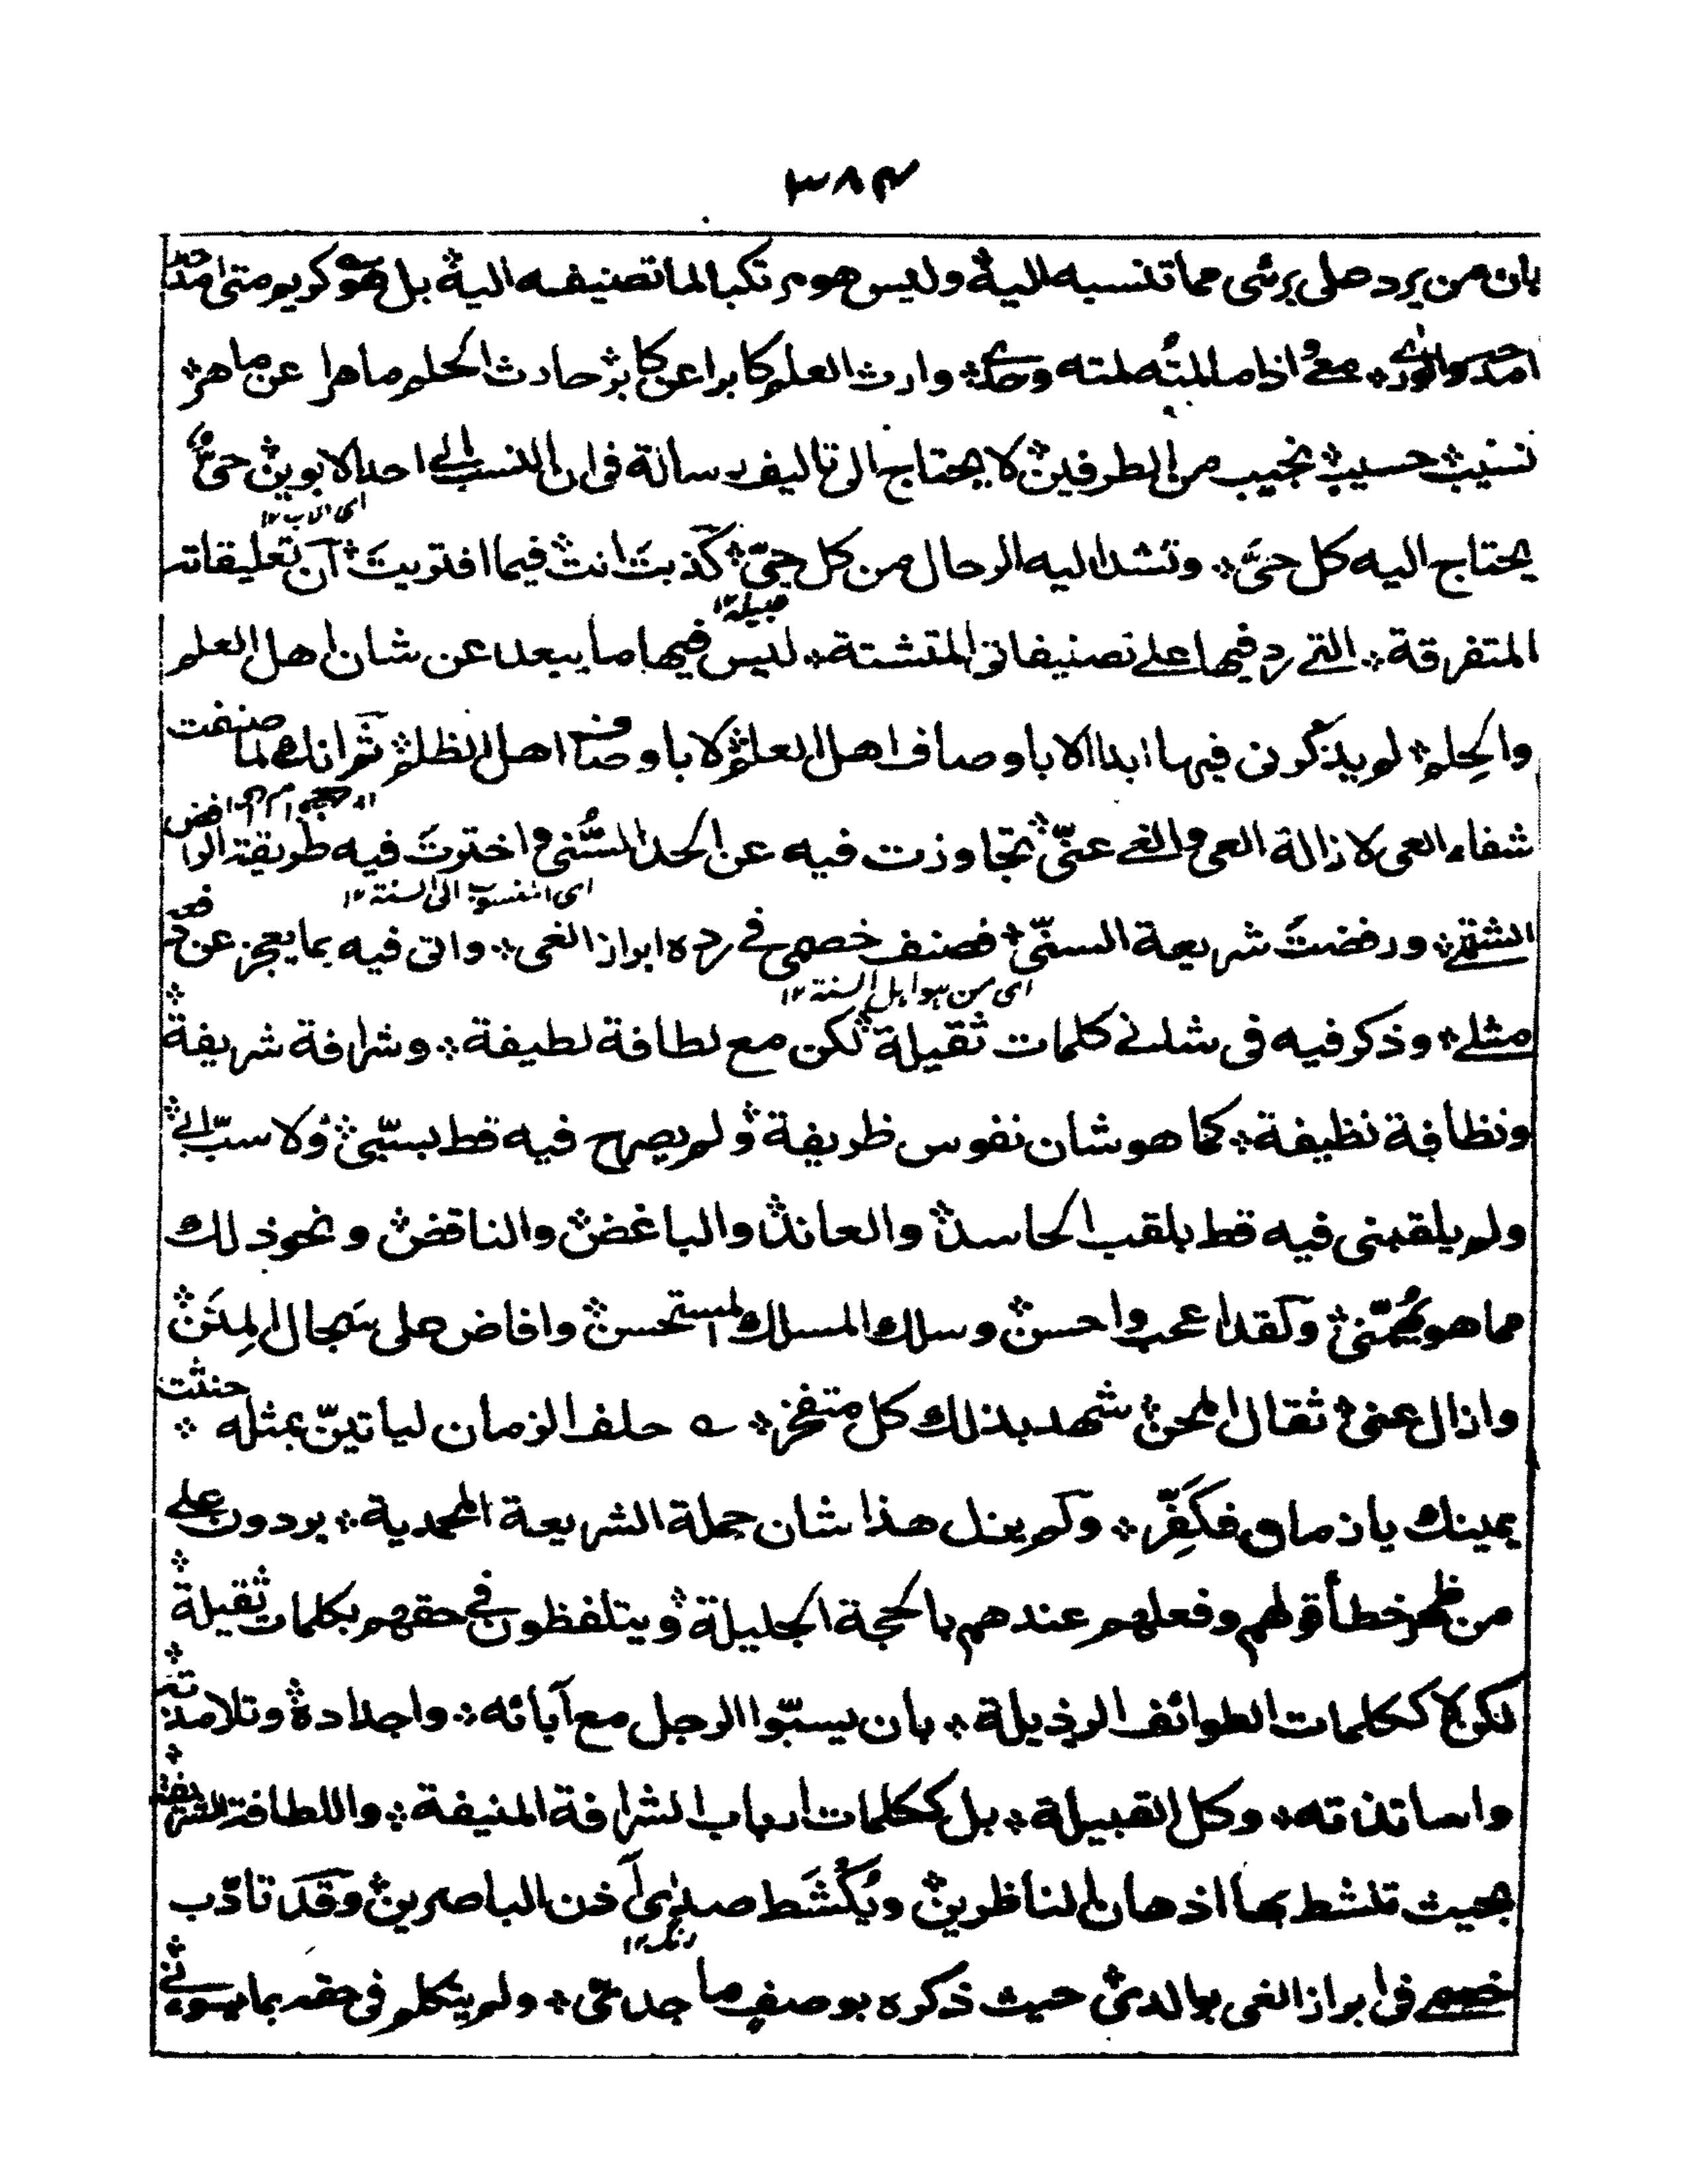 ٣٨٤
بان من يرد على برئ مما تنسبه اليه وليس هو مرتكبا لما تضيفه اليه بل هو كريم متى امدحه
امدحه والورى معى واذا ما لمته لمته وحدى وارث العلم كابرا عن كابر حارث الحلم ماهرا عن ماهر
نسيب حسيب نجيب من الطرفين لا يحتاج الى تاليف رسالة فى ان النسب الى احد الابوين حيّ
اى الاب ١٢
يحتاج اليه كل حىّ وتشد اليه الرحال من كل حىّ كذبتَ انت فيما افتريتَ آن تعليقاته
قبيلة ١٢
المتفرقة التى رد فيها على تصنيفاتى المتشتة ليس فيها ما يبعد عن شان اهل العلم
والحِلم لم يذكرنى فيها ابدا الا باوصاف اهل العلم لا باوصاف اهل الظلم ثم انك لما صنفت
شفاء العى لازالة العى والغى عنّى تجاوزت فيه عن الحد السُّنى واخترتَ فيه طريقة الروافض
اى المنسوب الى السنة ١٢
الشقى ورفضتَ شريعة السنّى فصنف خصمى فى رده ابراز الغى واتى فيه بما يعجز عن دفعه
اى من هو اهل السنة ١٢
مثلى وذكر فيه فى شانى كلمات ثقيلة لكن مع لطافة لطيفة وشرافة شريفة
ونظافة نظيفة كما هو شان نفوس ظريفة ولم يصرح فيه قط بسبّى ولا سبّ ابى
ولم يلقبنى فيه قط بلقب الحاسد والعاند والباغض والناقض ونحو ذلك
مما هو يُهمّنى ولقد اعجب واحسن وسلك المسلك المستحسن وافاض على سَجال المِنَن
وازال عنى ثقال المحن شهد بذلك كل متفخر ؎ حلف الزمان لياتينّ بمثله حنثت
يمينك يا زمان فكَفِّر ولم يزل هذا شان حملة الشريعة المحمدية يردون على
من ظهر خطأ قولهم وفعلهم عندهم بالحجة الجليلة ويتلفظون فى حقهم بكلمات ثقيلة
لكن لا ككلمات الطوائف الرذيلة بان يسبّوا الرجل مع آبائه واجداده وتلامذته
واساتذته وكل القبيلة بل ككلمات ارباب الشرافة المنيفة واللطافة الشريفة
بحيث تنشط بها اذهان المناظرين ويُكْشَط صدى آذن الباصرين وقد تادّب
زنگ ١٢
خصمى فى ابراز الغى بوالدى حيث ذكره بوصف ما جد حى ولم يتكلم فى حقه بما يسوءنى